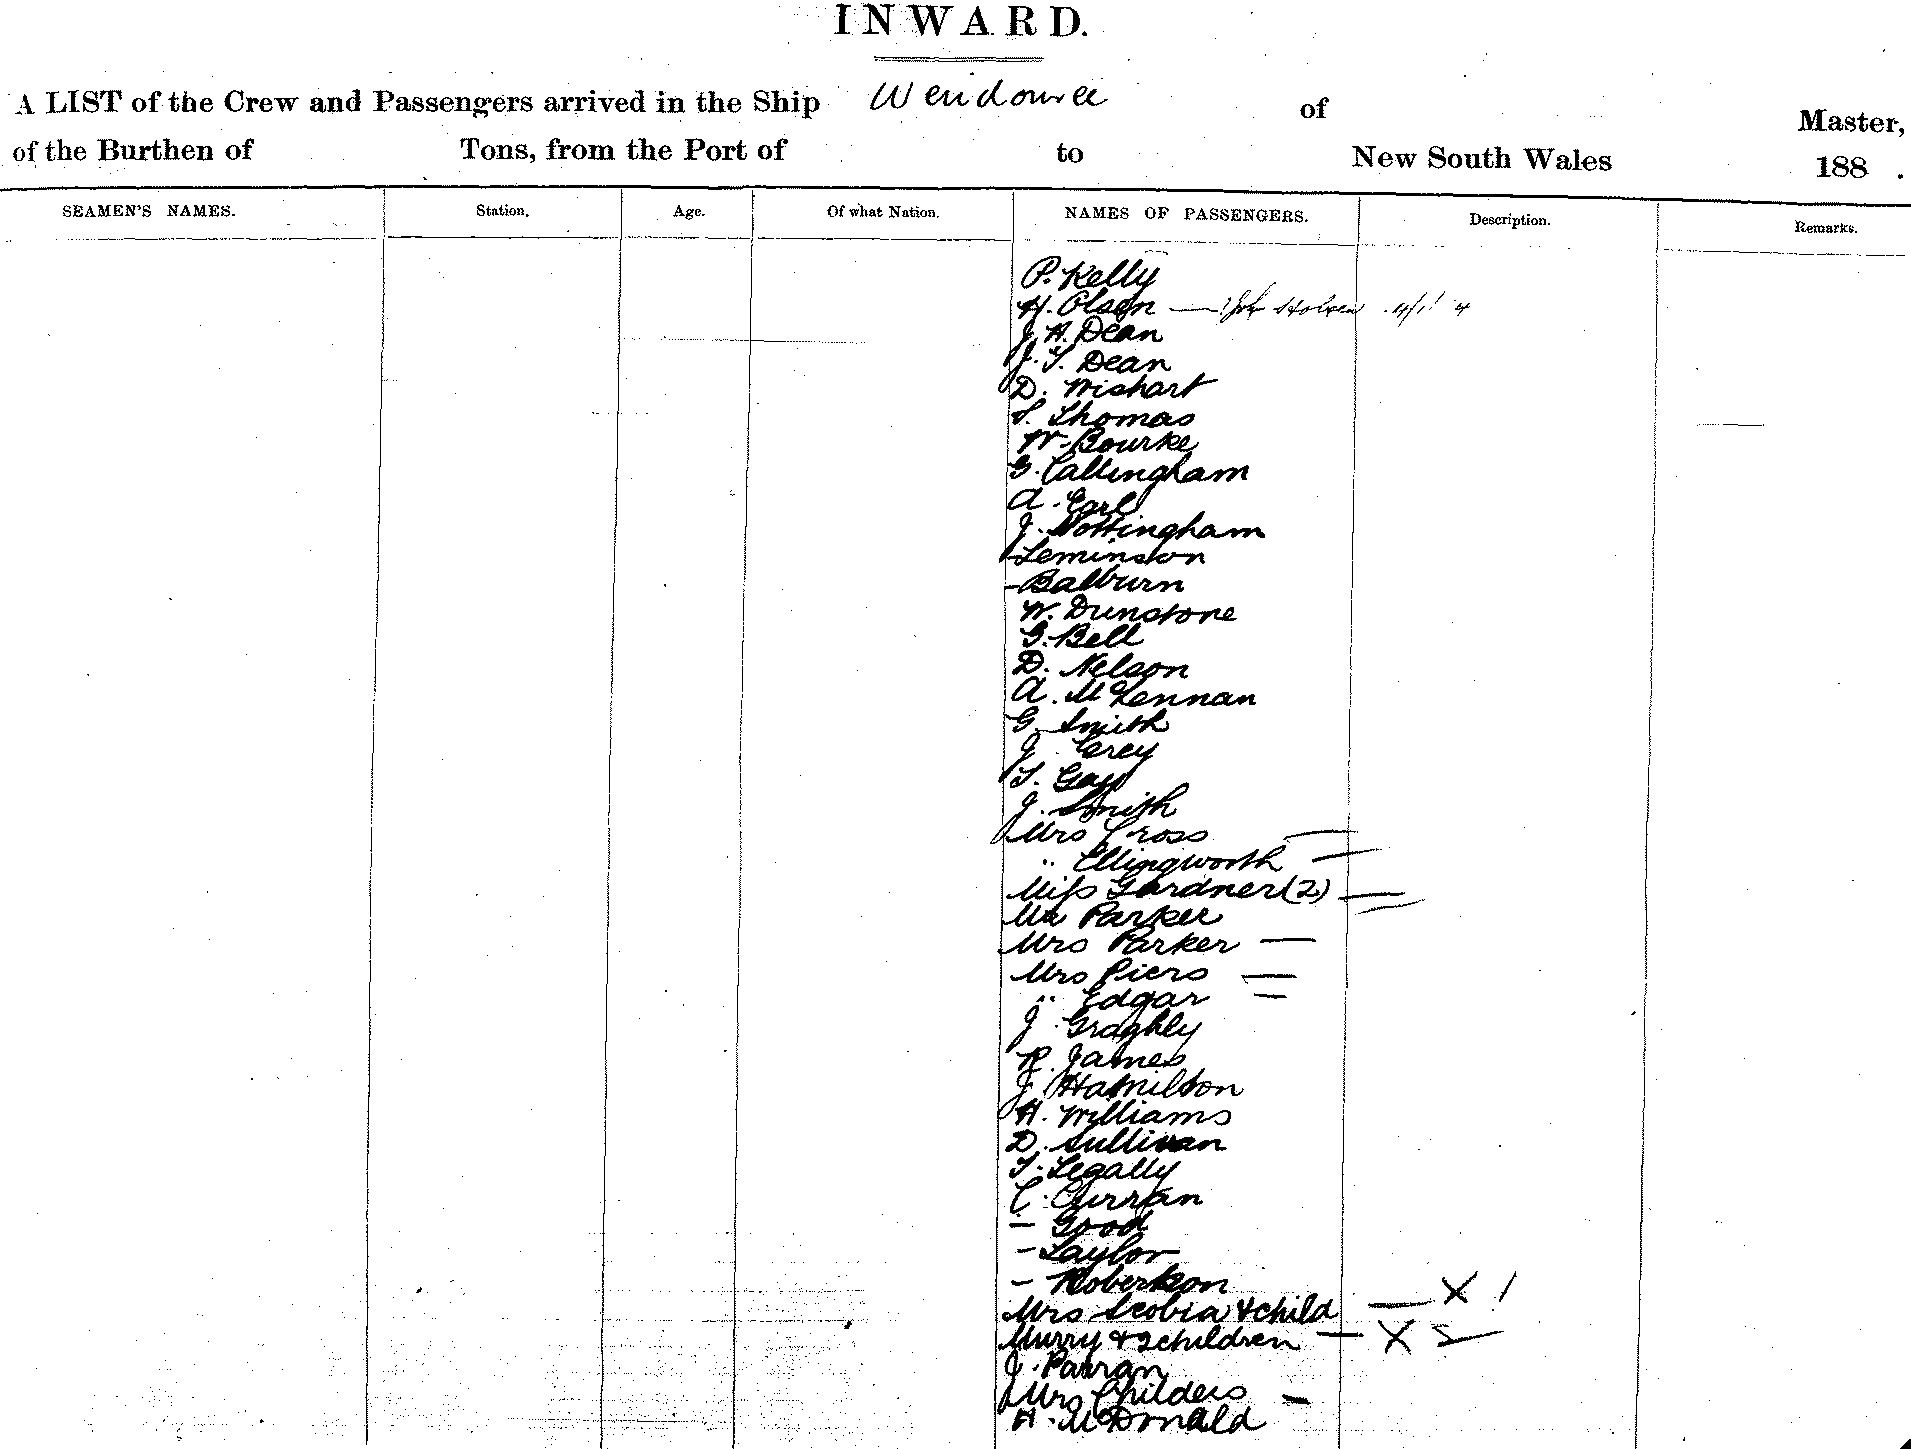 INWARD.
A LIST of the Crew and Passengers arrived in the Ship Wendouree of Master,
of the Burthen of Tons, from the Port of to New South Wales 188 .
SEAMEN'S NAMES. Station. Age. Of what Nation. NAMES OF PASSENGERS. Description. Remarks.
P. Kelly
H. Olsen —
J. H. Dean
J. T. Dean
D. Wishart
S. Thomas
W. Bourke
G. Callingham
A. Earl
J. Nottingham
Leminson
- Balburn
W. Dunstone
G. Bell
D. Nelson
A. McLennan
G. Smith
J. Carey
T. Gay
J. Smith
Mrs Cross —
" Ellingworth —
Miss Gardner (2) —
Mr Parker
Mrs Parker —
Mrs Piers —
" Edgar —
J. Graghly
R. James
J. Hamilton
H. Williams
D. Sullivan
T. Legally
C. Curran
- Good
- Taylor
- Robertson
Mrs Scobia & child — X 1
Murry & 2 children — X 2
J. Parran
Mrs Childers —
H. McDonald